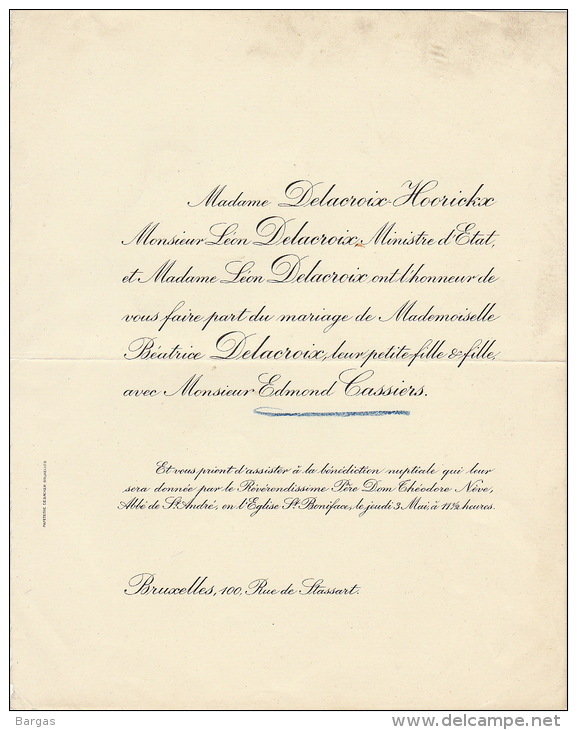 Madame Delacroix-Hoorickx
Monsieur Léon Delacroix, Ministre d'Etat,
et Madame Léon Delacroix ont l'honneur de
vous faire part du mariage de Mademoiselle
Béatrice Delacroix, leur petite fille & fille,
avec Monsieur Edmond Cassiers.
Et vous prient d'assister à la bénédiction nuptiale qui leur
sera donnée par le Révérendissème Père Dom Théodore Nève,
Abbé de St. André, en l'Eglise St. Boniface, le jeudi 3 Mai, à 11½ heures.
Bruxelles, 100, Rue de Stassart.
Bargas
www.delcampe.net